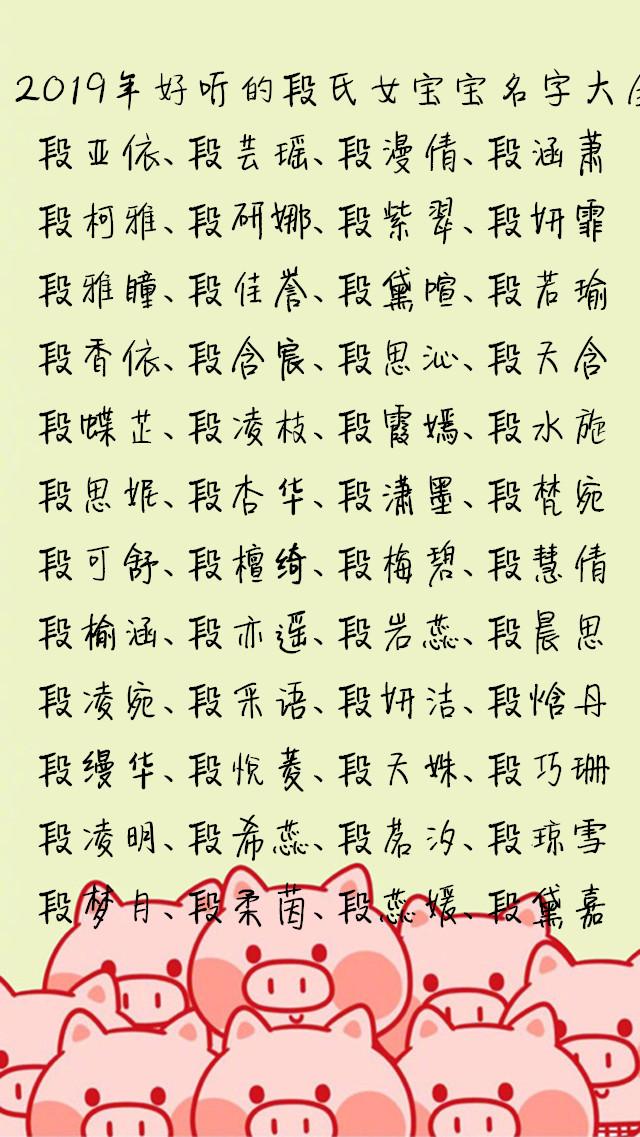 2019年好听的段氏女宝宝名字大全
段亚依、段芸瑶、段漫倩、段涵萧
段柯雅、段研娜、段紫翠、段妍霏
段雅瞳、段佳誉、段黛喧、段若瑜
段香依、段含宸、段思沁、段天含
段蝶芷、段凌枝、段霞嫣、段水施
段思妮、段杏华、段潇墨、段梵宛
段可舒、段檀绮、段梅碧、段慧倩
段榆涵、段亦遥、段岩蕊、段晨思
段凌宛、段采语、段妍洁、段怡丹
段缦华、段悦菱、段天姝、段巧珊
段凌明、段希蕊、段茗汐、段琼雪
段梦月、段柔茵、段蕊媛、段黛嘉